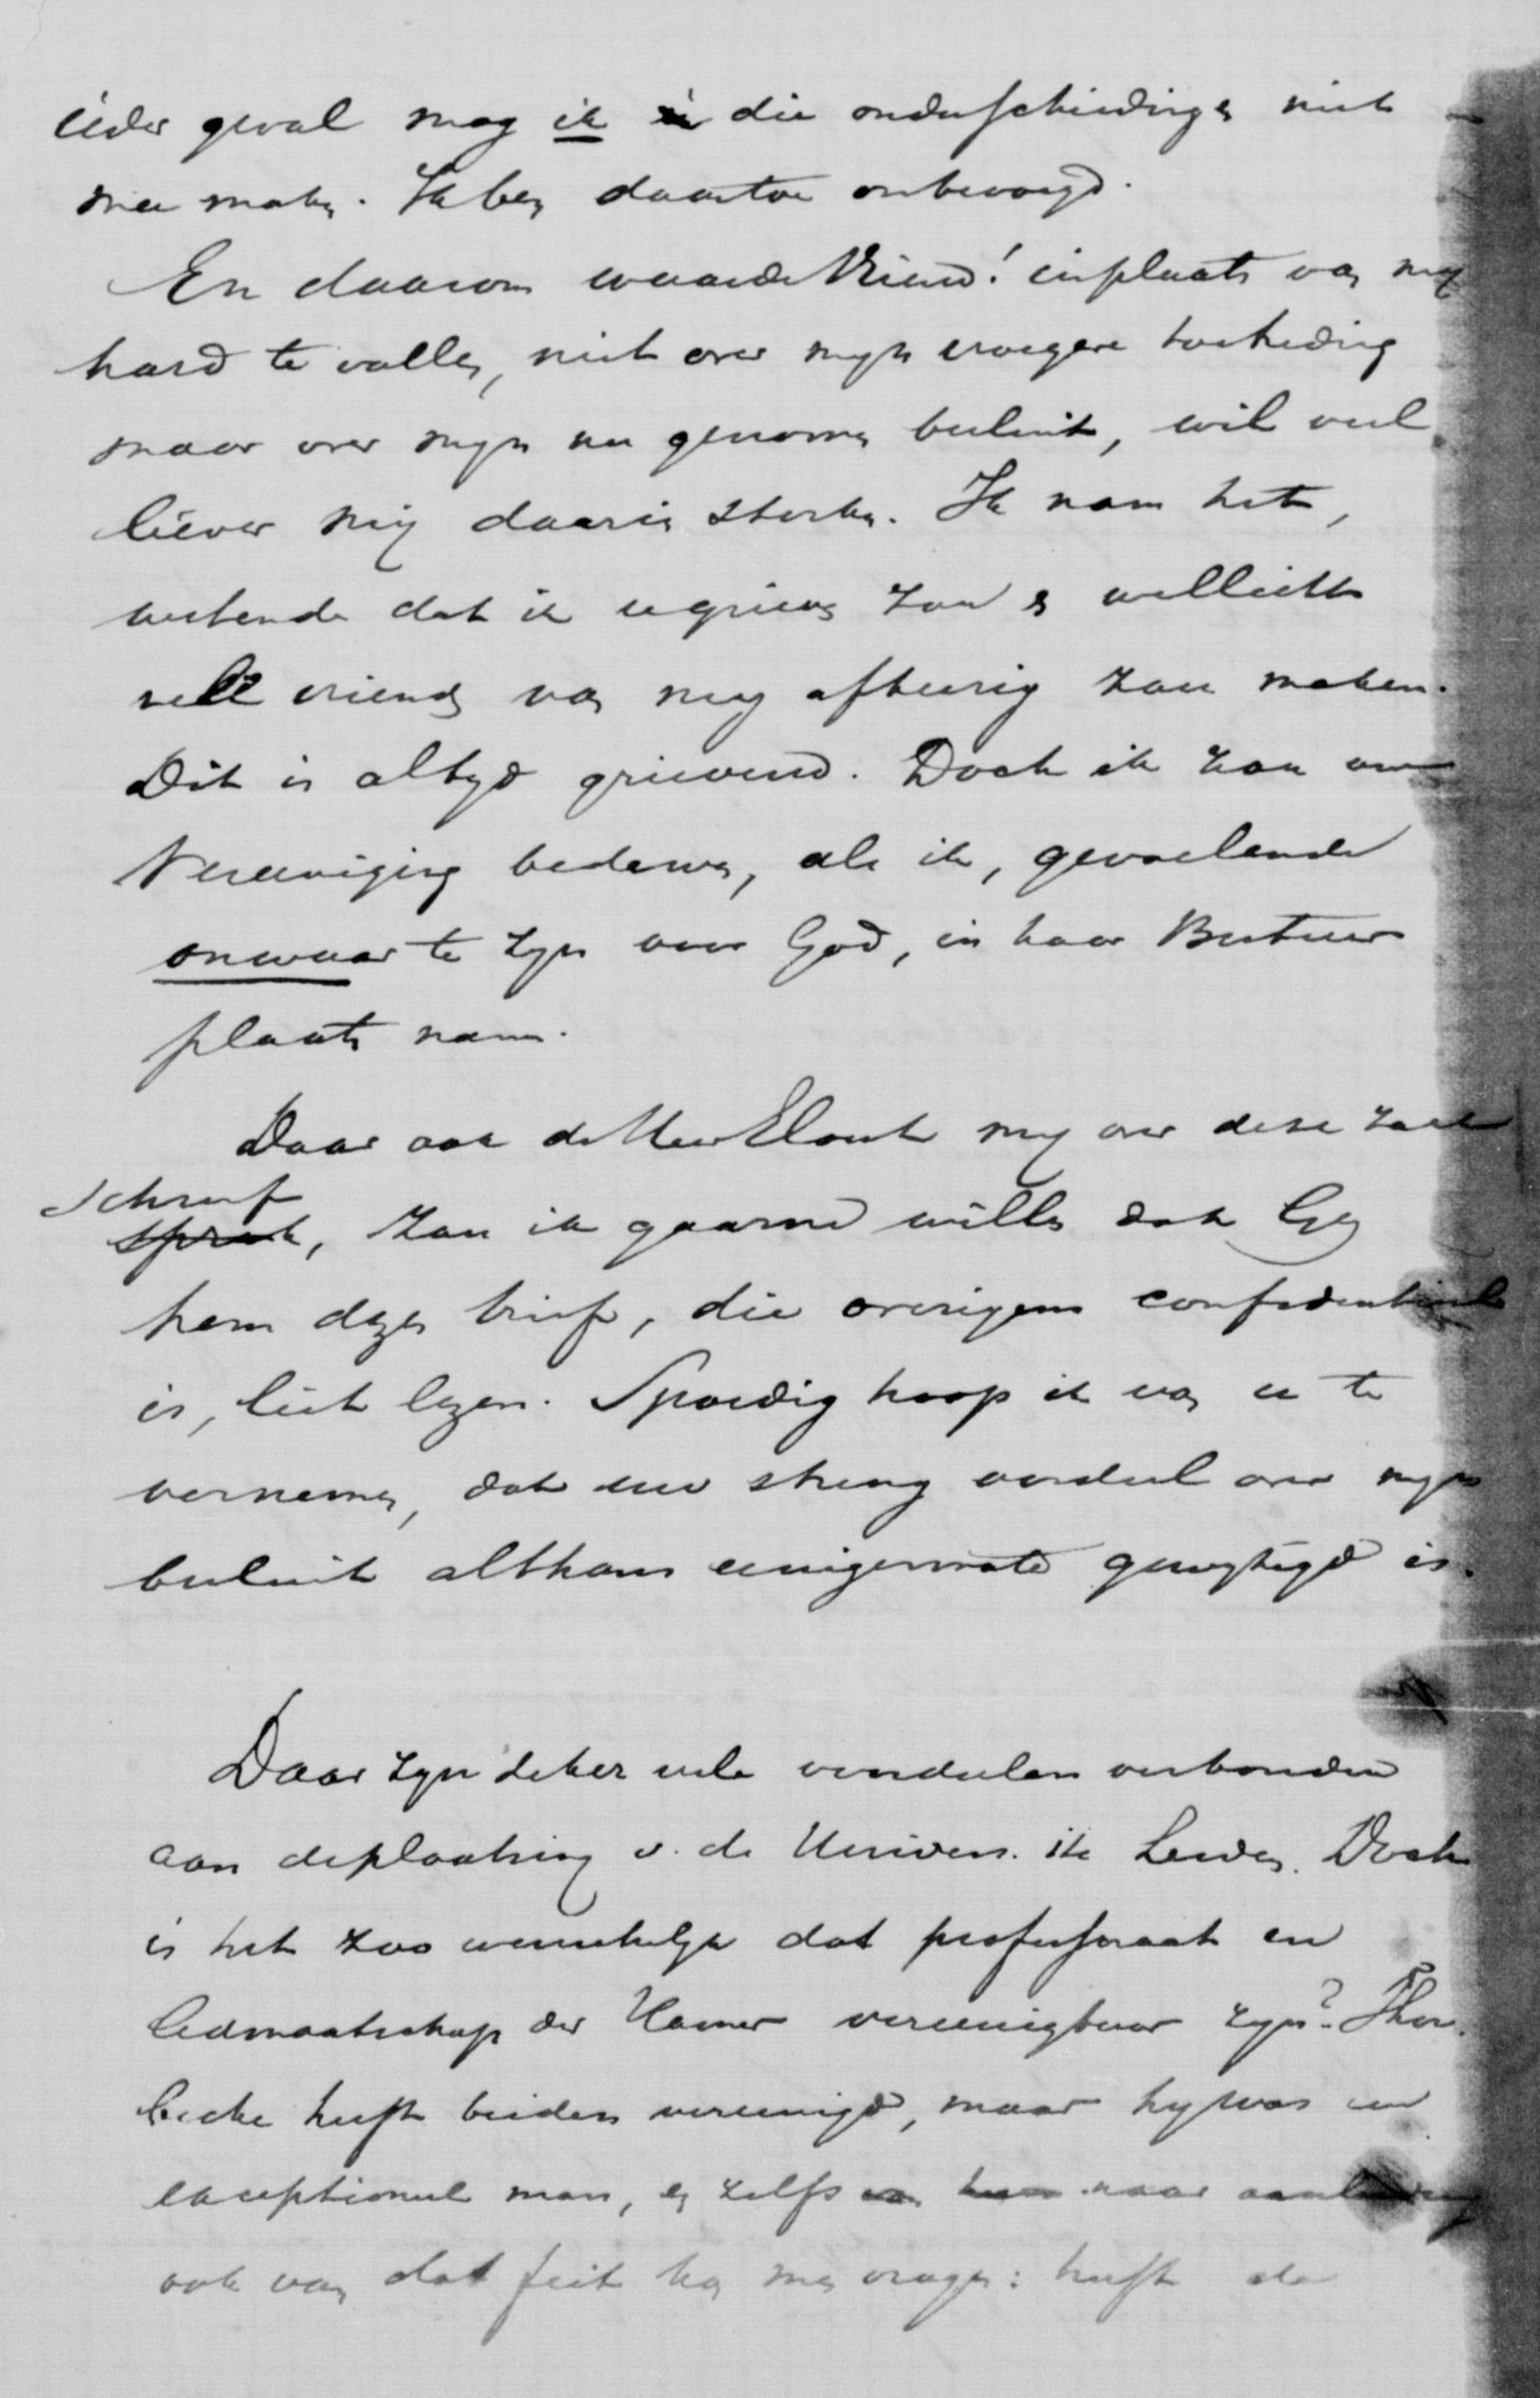 ieder geval mag ik die onderscheidingen niet
mee maken. Ik ben daartoe onbevoegd.
En daarom waarde Vriend! inplaats van mij
hard te vallen, niet over mijn vroegere toetreding
maar over mijn nu genomen besluit, wil veel
liever mij daarin sterken. Ik nam het,
wetende dat ik u grieven zou en wellicht
vele vrienden van mij afkeerig zou maken.
Dit is altijd grievend. Doch ik zou onze
Vereeniging bederven, als ik, gevoelende
onwaar te zijn voor God, in haar Bestuur
plaats nam.
Daar ook de Heer Elout mij over deze zaak
schreef
sprak, zou ik gaarne willen dat Gij
hem dezen brief, die overigens confidentieel
is, liet lezen. Spoedig hoop ik van u te
vernemen, dat uw streng oordeel over mijn
besluit althans eenigermate gewijzigd is.
Daar zijn zeker vele voordeelen verbonden
aan de plaatsing v. de Univers. te Leiden. Doch
is het zoo wenschelijk dat professoraat en
lidmaatschap der Kamer vereenigbaar zijn? Thor-
becke heeft beiden vereenigd, maar hij was een
exceptioneel man, en zelfs naar aanleiding
ook van dat feit kan men vragen: heeft de